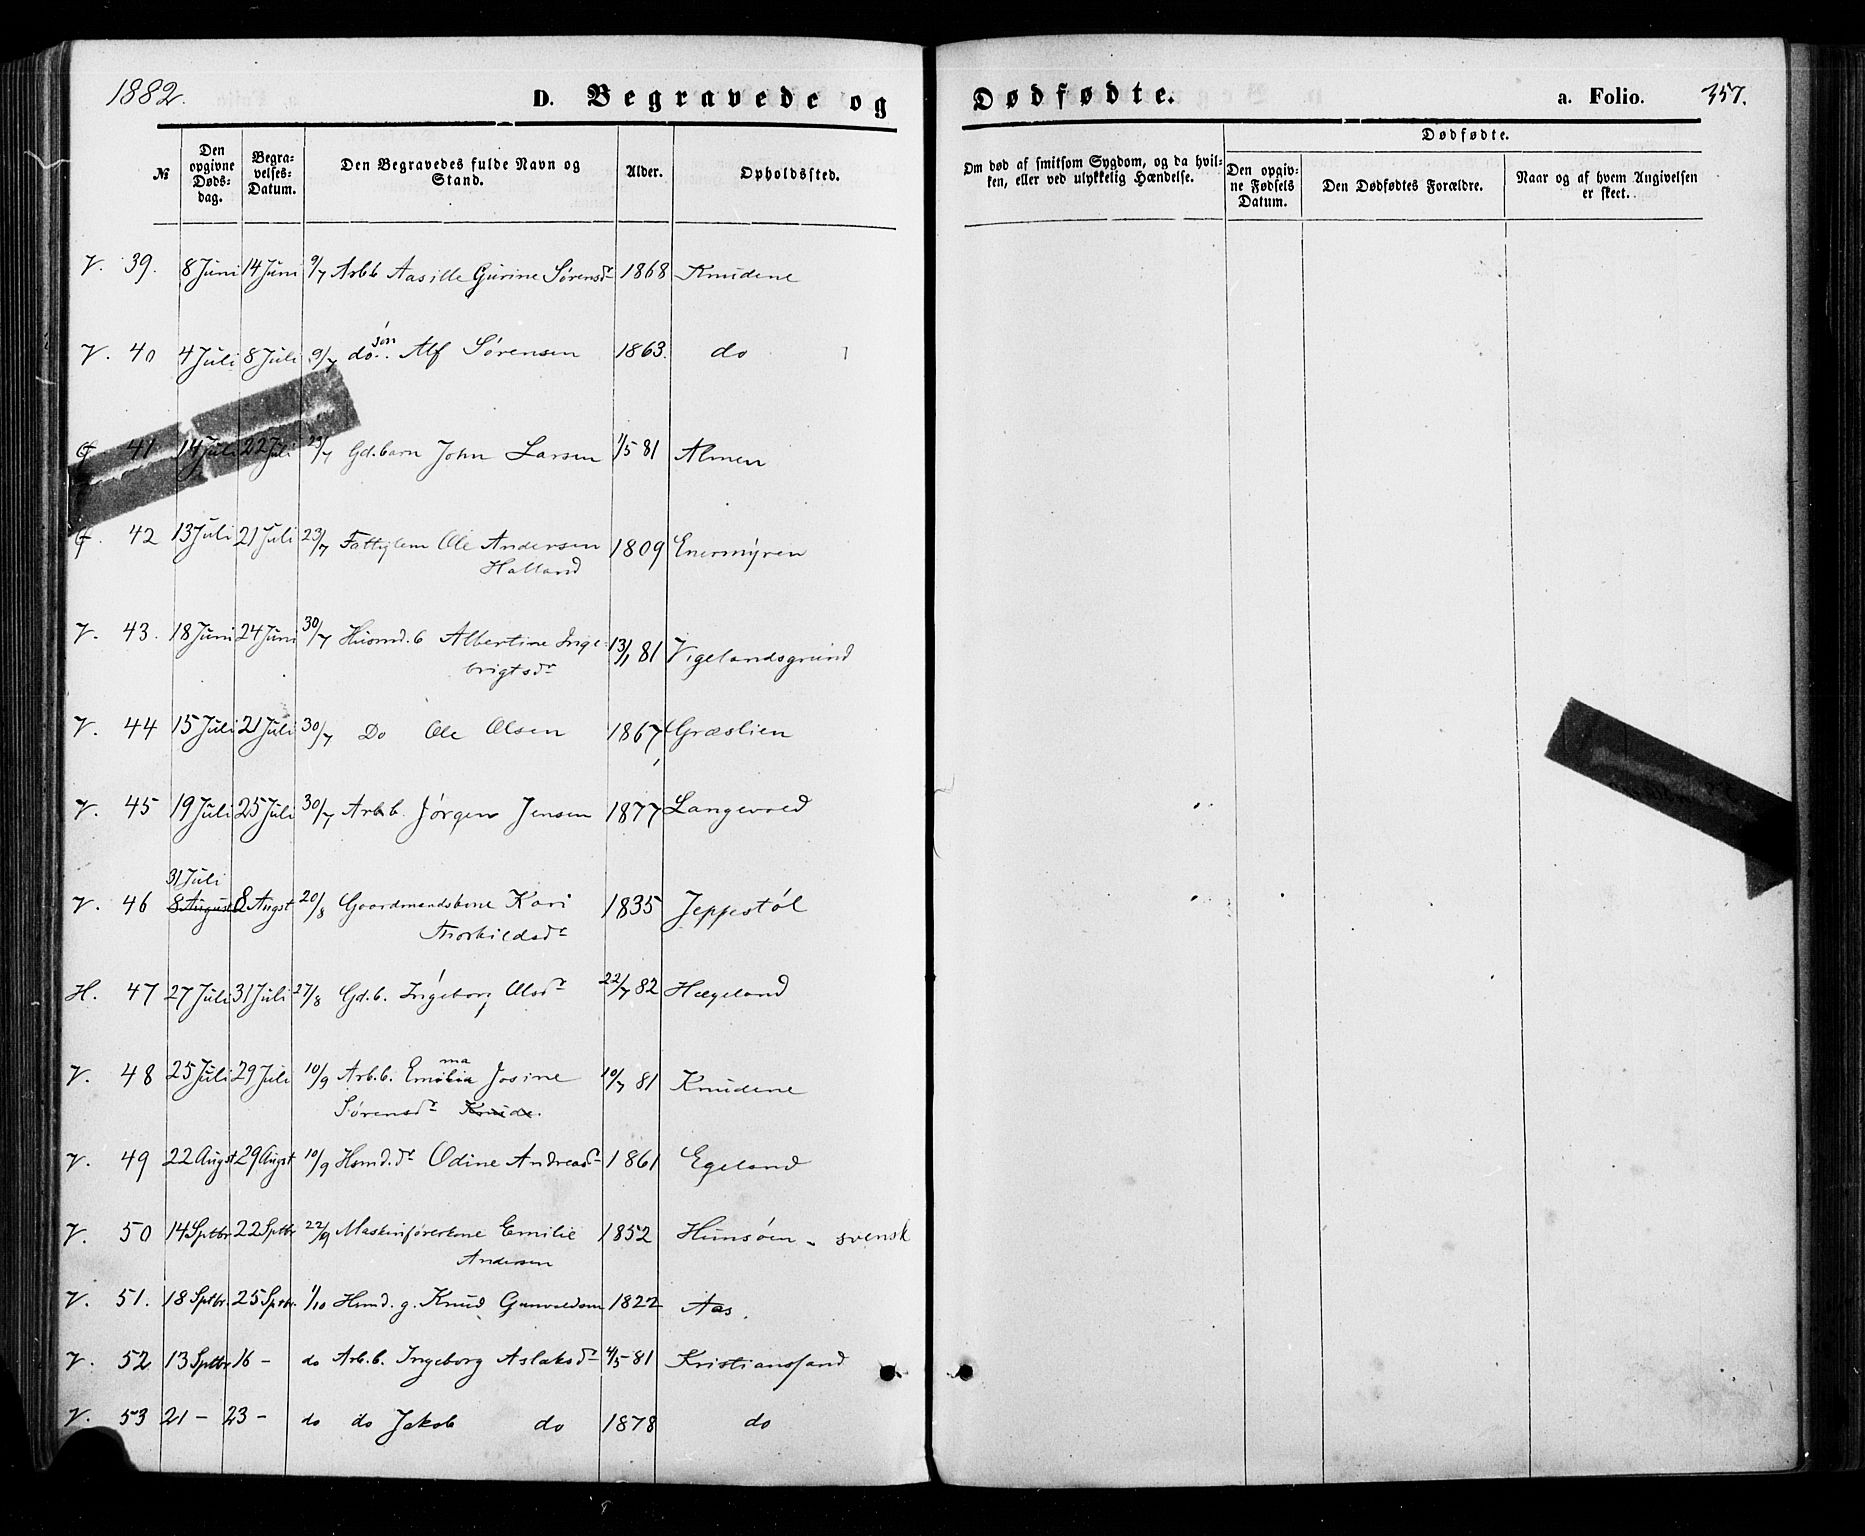 1882.
D. Begravede og
Dødfødte.
a. Folio. 357.
№
Den opgivne Døds-dag.
Begra-velses-Datum.
Den Begravedes fulde Navn og Stand.
Alder.
Opholdssted.
Om død af smitsom Sygdom, og da hvil-ken, eller ved ulykkelig Hændelse.
Dødfødte.
Den opgiv-ne Fødsels Datum.
Den Dødfødtes Forældre.
Naar og af hvem Angivelsen er skeet.
V. 39. 8 Juni 14 Juni 9/7 Arb.b Aasille Gurine Sørensdr 1868 Knudene
V. 40 4 Juli 8 Juli 9/7 do søn Alf Sørensen 1863. do
41 14 Juli 22 Juli 23/7 Gd.barn John Larsen 1/5 81 Almen
42 13 Juli 21 Juli 23/7 Fattiglem Ole Andersen 1809 Enermyren
Halland
V. 43. 18 Juni 24 Juni 30/7 Husmd.b Albertine Inge- 13/1 81 Vigelandsgrund
brigtsdr
V. 44 15 Juli 21 Juli 30/7 Do Ole Olsen 1867 Græslien
V. 45 19 Juli 25 Juli 30/7 Arb.b. Jørgen Jensen 1877 Langevold
31 Juli
V. 46 8 August 8 Augst 20/8 Gaardmandskone Kari 1835 Jeppestøl
Thorkildsdr
H. 47 27 Juli 31 Juli 27/8 Gd.b. Ingeborg Olsdr 22/7 82 Hægeland
ma
V. 48 25 Juli 29 Juli 10/9 Arb.b. Emilie Josine 10/7 81 Knudene
Sørensdr Knude.
V. 49 22 Augst 29 Augst 10/9 Hsmd.dr Odine Andreasdr 1861 Egeland
V. 50 14 Sptbr 22 Sptbr 22/9 Maskinførerkone Emilie 1852 Hunsøen - svensk
Andersen
V. 51. 18 Sptbr. 25 Sptbr. 1/10 Hsmd. g. Knud Gunvaldsen 1822 Aas.
V. 52 13 Sptbr 16 - do Arb.b. Ingeborg Aslaksdr 4/5 81 Kristianssand
V. 53 21 - 23 - do do Jakob do 1878 do